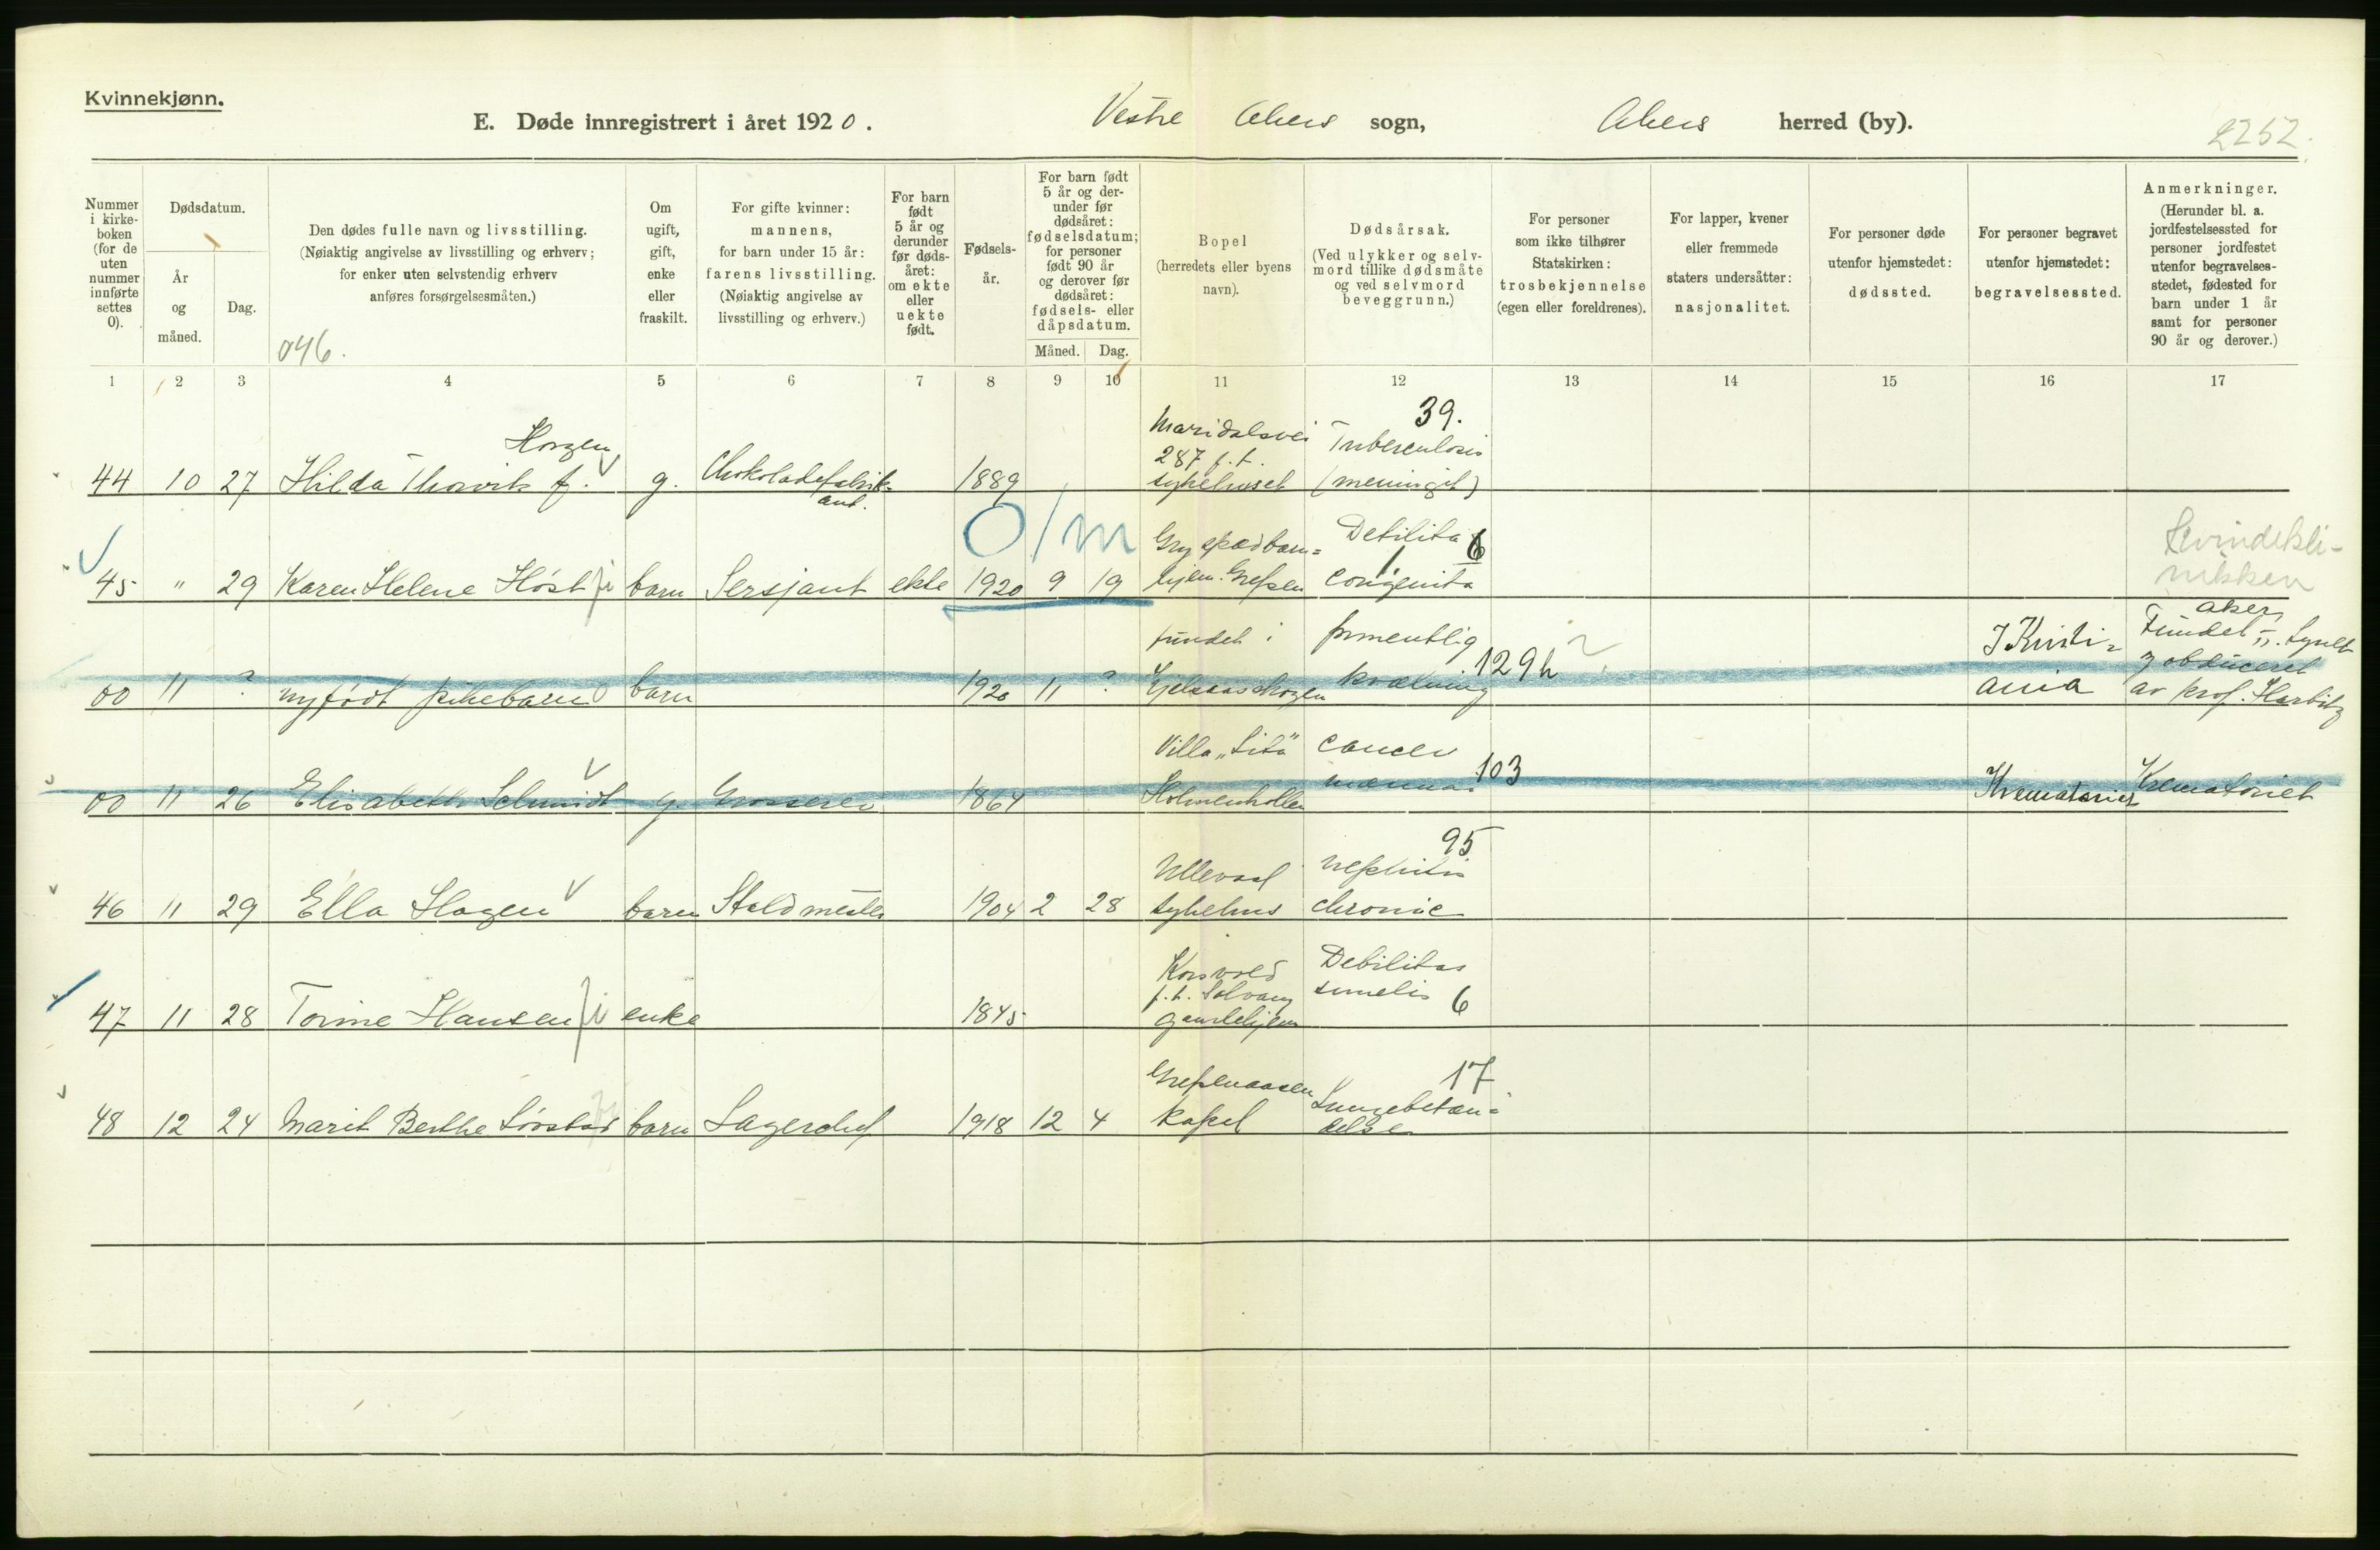 Kvinnekjønn.
E. Døde innregistrert i året 1920. Vestre Akers sogn, Akers herred (by).
2252.
Nummer i kirkeboken (for de uten nummer innførte settes 0).
Dødsdatum.
År og måned.
Dag.
Den dødes fulle navn og livsstilling.
(Nøiaktig angivelse av livsstilling og erhverv;
for enker uten selvstendig erhverv
anføres forsørgelsesmåten.)
046.
Om ugift, gift, enke eller fraskilt.
For gifte kvinner: mannens, for barn under 15 år: farens livsstilling.
(Nøiaktig angivelse av livsstilling og erhverv.)
For barn født 5 år og derunder før dødsåret: om ekte eller uekte født.
Fødselsår.
For barn født 5 år og derunder før dødsåret: fødselsdatum; for personer født 90 år og derover før dødsåret: fødsels- eller dåpsdatum.
Måned. Dag.
Bopel (herredets eller byens navn).
Dødsårsak.
(Ved ulykker og selvmord tillike dødsmåte og ved selvmord beveggrunn.)
For personer som ikke tilhører Statskirken: trosbekjennelse (egen eller foreldrenes).
For lapper, kvener eller fremmede staters undersåtter: nasjonalitet.
For personer døde utenfor hjemstedet: dødssted.
For personer begravet utenfor hjemstedet: begravelsessted.
Anmerkninger.
(Herunder bl. a. jordfestelsessted for personer jordfestet utenfor begravelsesstedet, fødested for barn under 1 år samt for personer 90 år og derover.)
1 2 3 4 5 6 7 8 9 10 11 12 13 14 15 16 17
Horgen Maridalsvei 39.
287 f.t. Tuberculosis
44 10 27 Hilda Thorvik f. g. Chokoladefabrik= 1889 sykehuset (meningit)
ant.
O/m Gry spædbarn= Debilitas 6 Kvindekli-
45 " 29 Karen Helene Høst barn Sersjant ekte 1920 9 19 hjem. Grefsen congenita nikken
fundet i formentlig I Kristi= Fundet i Aker,
129h
00 11 ? nyfødt pikebarn barn 1920 11 ? kvælning ania av prof. Harbitz
obduceret
Villa cancer
103
00 11 26 Elisabeth Schmidt g Grosserer 1864 Holmenkollen mammae Krematoriet Krematoriet
95
Ullevaal nephritis
46 11 29 Ella Hagen barn Staldmester 1904 2 28 sykehus chronic
Korsvold Debilitas
f.t. Solvang senilis 6
47 11 28 Torine Hansen enke 1845 gamlehjem
Grefsenaasen 17
Lungebetæn=
48 12 24 Marit Berthe Sørstad barn Lagerchef 1918 12 4 kapel delse